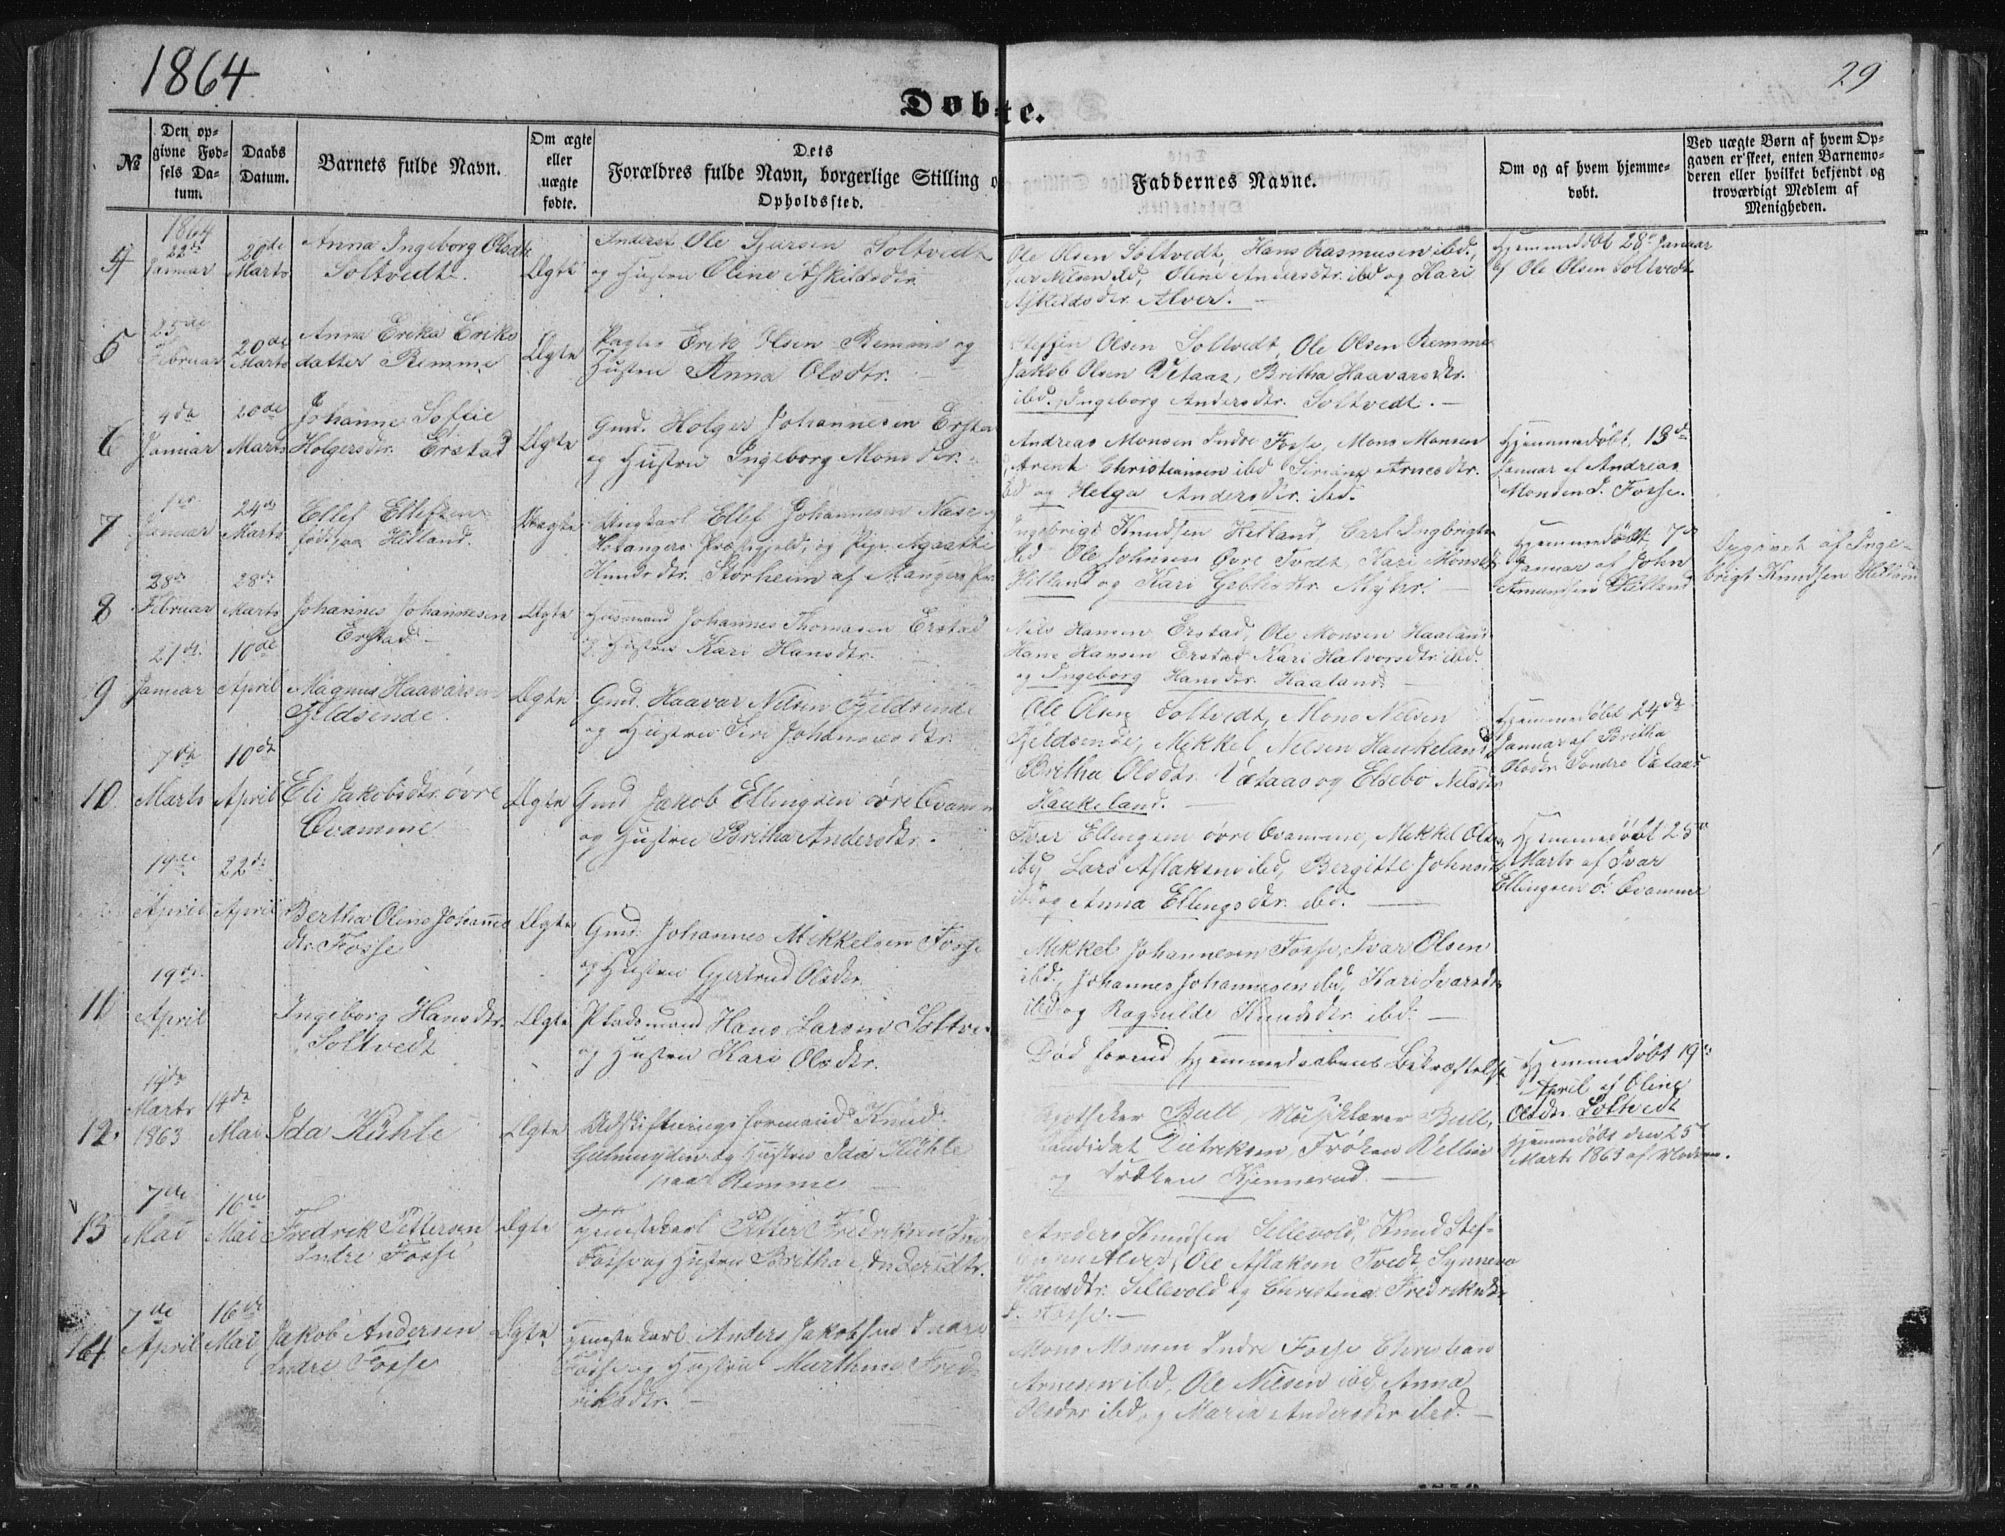 1864
29
Døbte.
№
Den opgivne Fødsels Datum.
Daabs Datum.
Barnets fulde Navn.
Om ægte eller uægte fødte.
Dets Forældres fulde Navn, borgerlige Stilling o
Opholdssted.
Faddernes Navne.
Om og af hvem hjemmedøbt.
Ved uægte Børn af hvem Opgaven er skeet, enten Barnemoderen eller hvilket bekjendt og troværdigt Medlem af Menigheden.
1864
4
22de Januar
20de Marts
Anna Ingeborg Olsdtr
Soltvedt.
Ægte
Ole Sjursen Soltvedt
og Hustru Oline Askildsdtr.
Ole Olsen Soltvedt, Hans Rasmusen ibd,
Nilsen ibd, Oline Andersdtr. ibd og Kari
Askildsdtr. Alver. —
Hjemmedøbt 28de Januar
af Ole Olsen Soltvedt
5
25de Februar
20de Marts
Anna Erika Eriks
datter Remme
Ægte
Erik Olsen Remme og
Hustru Anna Olsdtr.
Steffen Olsen Soltvedt, Ole Olsen Remme
Jakob Olsen Vetaas, Britha Haavarsdtr.
ibd. Ingeborg Andersdtr. Soltvedt. —
6
4da Januar
20de Marts
Johanne Sofie
Holgersdtr. Erstad
Ægte
Gmd. Holger Johannesen Erstad
og Hustru Ingeborg Monsdtr.
Andreas Monsen Indre Fosse, Mons Monsen
Arent Christiansen ibd Arnesdtr.
ibd og Helga Andersdtr. ibd.
Hjemmedøbt 13de
Januar af Andreas
Monsen I. Fosse.
7
1ste Januar
24de Marts
Ellef Ellefsen
født paa Hitland.
Uægte
Ungkarl Ellef Johannesen Næse
Præstegjeld, og Pige Agaathe
Knudsdtr. Storheim af Manger
Ingebrigt Knudsen Hitland, Carl Ingbrigts
ibd Ole Johnsen Øvre Tvedt, Kari Monsdtr
Hitland og Kari Myhr. —
Hjemmedøbt 7de
Januar af John
Amundsen Hitland
Opgivet af Inge-
brigt Knudsen Hitland
8
28de Februar
28de Marts
Johannes Johannesen
Erstad —
Ægte
Huusmand Johannes Thomasen Erstad
og Hustru Kari Hansdtr.
Nils Hansen Erstad, Ole Monsen Haaland
Hans Hansen Erstad Kari Halvorsdtr. ibd.
og Ingeborg Hansdtr. Haaland. —
9
21de Januar
10de April
Magnus Haavarsen
Fjeldsende.
Ægte
Gmd. Haavar Nilsen Fjeldsende
og Hustru Siri Johannesdtr.
Ole Olsen Soltvedt, Mons Nilsen
Fjeldsende, Mikkel Nilsen Haukeland
Britha Olsdtr. Vetaas og Elsebe Nilsdtr
Haukeland. —
Hjemmedøbt 24da
Januar af Britha
Olsdtr. Søndre Vetaas
10.
7da Marts
10da April
Eli Jakobsdtr. øvre
Qvamme
Ægte
Gmd Jakob Ellingsen øvre Qvamme
og Hustru Britha Andersdtr.
Ivar Ellingsen øvre Qvamme, Mikkel Olsen
ibd, Lars Aslaksen ibd, Bergitte Johnsdtr
ibd og Anna Ellingsdtr. ibd. —
Hjemmedøbt 25de
Marts af Ivar
Ellingsen ø. Qvamme
April
22de April
Bertha Oline Johanne
dtr. Fosse
Ægte
Gmd. Johannes Mikkelsen Fosse
og Hustru Gjertrud Olsdtr.
Mikkel Johannesen Fosse, Ivar Olsen
ibd, Johannes Johannesen ibd, Kari Ivarsdtr
ibd og Ragnilde Knudsdtr ibd. —
11
19de April
Ingeborg Hansdtr.
Soltvedt
Ægte
Pladsmand Hans Larsen Soltve
og Hustru Kari Olsdtr.
Død forend Hjemmedaabens Bekræftelse
Hjemmedøbt 19de
April af Oline
Olsdtr. Soltvedt
12.
14de Marts 1863
14da Mai
Ida Kühle
Ægte
Udskiftningsformand Knud
og Hustru Ida Kühle
paa Remme —
Apotheker Bull, Musiklærer Bull,
Kandidat Frøken
og Frøken Kjennerud. —
Hjemmedøbt den 25de
Marts 1863 af Moderen.
13
7de Mai
16de Mai
Fredrik Pettersen
Indre Fosse
Ægte
Tjenestekarl Petter Fredriksen
Fosse og Hustru Britha Andersdtr.
Anders Knudsen Sellevold, Knud Stef-
Alver, Ole Aslaksen Tvedt, Synneva
Hansdtr. Sellevold og Christina Fredriksdtr
I. Fosse. —
14
7de April
16de Mai
Jakob Andersen
Indre Fosse
Ægte
Tjenestekarl Anders Jakobsen Indre
Fosse og Hustru Marthine Fred-
riksdtr. —
Mons Monsen Indre Fosse Christian
Arnesen ibd, Ole Nilsen ibd, Anna
Olsdtr ibd, og Maria Andersdtr ibd. —